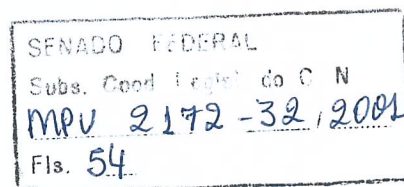 SENADO FEDERAL
Subs. Coord. Legisl. do C N
MPV 2172-32, 2001
Fls. 54